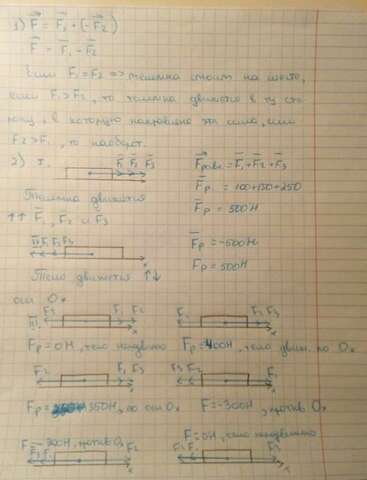 1) F = F₁ + (-F₂)
F = F₁ - F₂
Если F₁ = F₂ => тележка стоит на месте,
если F₁ > F₂, то тележка движется в ту сто
рону, в которую направлена эта сила, если
F₂ > F₁, то наоборот.
2) I.
F₁ F₂ F₃
x
Fравн = F₁ + F₂ + F₃
Fр = 100+150+250
Fр = 500Н
Тележка движется
↑↑ F₁, F₂ и F₃
II F₁ F₂ F₃
x
Fр = -500Н
Fр = 500Н
Тело движется ↑↓
оси Оx
III. F₃ F₁ F₂
x
F₁ F₂ F₃
x
Fр = 0Н, тело недвижно
Fр = 400Н, тело движ. по Оx
F₂ F₁ F₃
x
F₃ F₂ F₁
x
Fр = 350Н, по оси Оx
F = -300Н, против Оx
F = -200Н, против Оx
F = 0Н, тело недвижимо
F₂
x
x